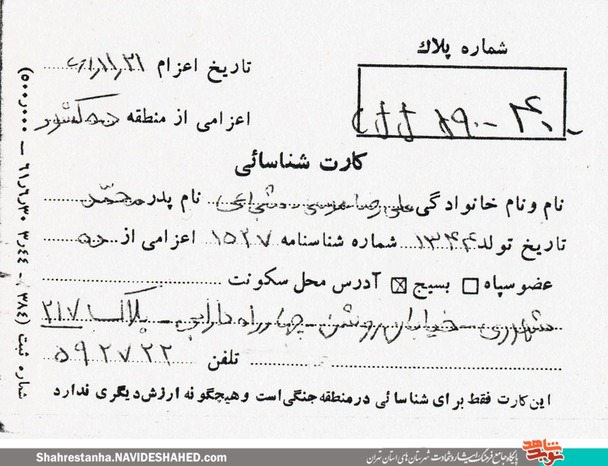 شماره پلاك
تاریخ اعزام
اعزامی از منطقه ده کشور
کارت شناسائی
نام و نام خانوادگی علیرضا نام پدر محمد
تاریخ تولد ۱۳۴۴ شماره شناسنامه ۱۵۲۷ اعزامی از ده
عضو سپاه □ بسیج ☒ آدرس محل سکونت
شهرری - خیابان روشن - چهارراه دارابی - پلاک ۲۱۷
تلفن ۵۹۲۷۲۲
این کارت فقط برای شناسائی در منطقه جنگی است و هیچگونه ارزش دیگری ندارد
شماره ثبت
Shahrestanha.NAVIDESHAHED.com
پایگاه جامع فرهنگ ایثار و شهادت شهرستان های استان تهران
نوید شاهد